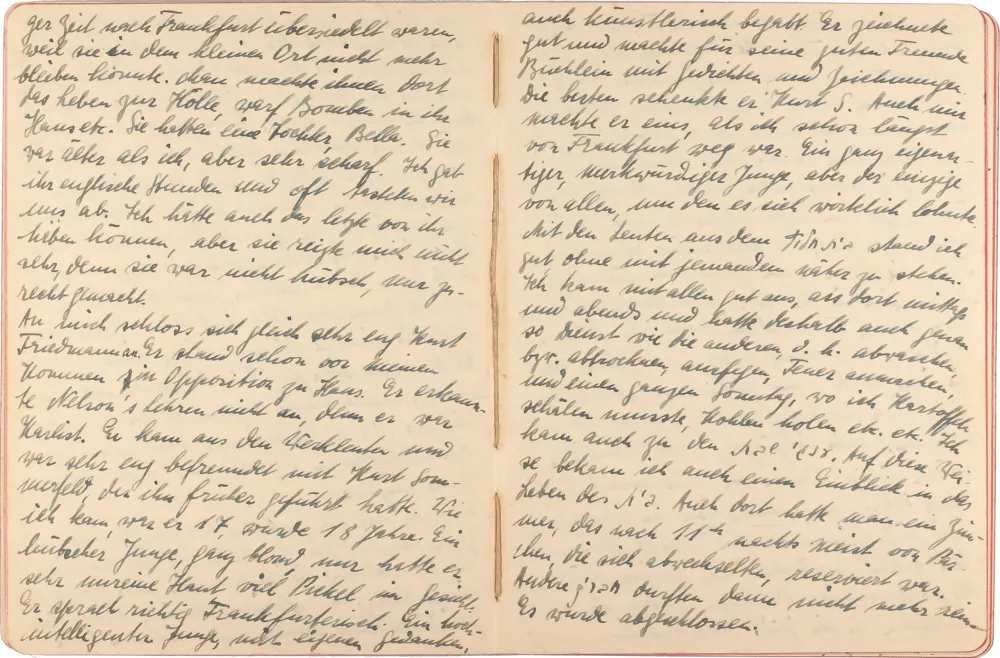 ger Zeit nach Frankfurt übersiedelt waren,
weil sie in dem kleinen Ort nicht mehr
bleiben konnte. Man machte ihnen dort
das Leben zur Hölle, warf Bomben in ihr
Haus etc. Sie hatten eine Tochter, Bella. Sie
war älter als ich, aber sehr scharf. Ich gab
ihr englische Stunden und oft tasteten wir
uns ab. Ich hätte auch das letzte von ihr
haben können, aber sie reizte mich nicht
sehr, denn sie war nicht hübsch, nur zu-
rechtgemacht.
An mich schloss sich gleich sehr eng Kurt
Friedmann an. Er stand schon vor meinem
Kommen in Opposition zu Hans. Er erkann-
te Nelson's Lehren nicht an, denn er war
Marxist. Er kam aus den Werkleuten und
war sehr eng befreundet mit Kurt Som-
merfeld, der ihn früher geführt hatte. Wie
ich kam, war er 17, wurde 18 Jahre. Ein
hübscher Junge, ganz blond, nur hatte er
sehr unreine Haut viel Pickel im Gesicht.
Er sprach richtig Frankfurterisch. Ein hoch-
intelligenter Junge, mit eigenen Gedanken,
auch künstlerisch begabt. Er zeichnete
gut und machte für seine guten Freunde
Büchlein mit Gedichten und Zeichnungen.
Die besten schenkte er Kurt S. Auch mir
machte er eins, als ich schon längst
von Frankfurt weg war. Ein ganz eigenar-
tiger, merkwürdiger Junge, aber der einzige
von allen, um den es sich wirklich lohnte.
Mit den Leuten aus dem stand ich
gut ohne mit jemandem näher zu stehen.
Ich kam mit allen gut aus, ass dort mittags
und abends und hatte deshalb auch genau
so Dienst wie die anderen, d. h. abwaschen,
bzw. abtrocknen, ausfegen, Feuer anmachen,
und einen ganzen Sonntag, wo ich Kartoffeln
schälen musste, Kohlen holen etc. etc. Ich
kam auch zu den. Auf diese Wei-
se bekam ich auch einen Einblick in das
Leben des. Auch dort hatte man ein Zim-
mer, das nach 11 h nachts meist von Pär-
chen, die sich abwechselten, reserviert war.
Andere durften dann nicht mehr rein.
Es wurde abgeschlossen.